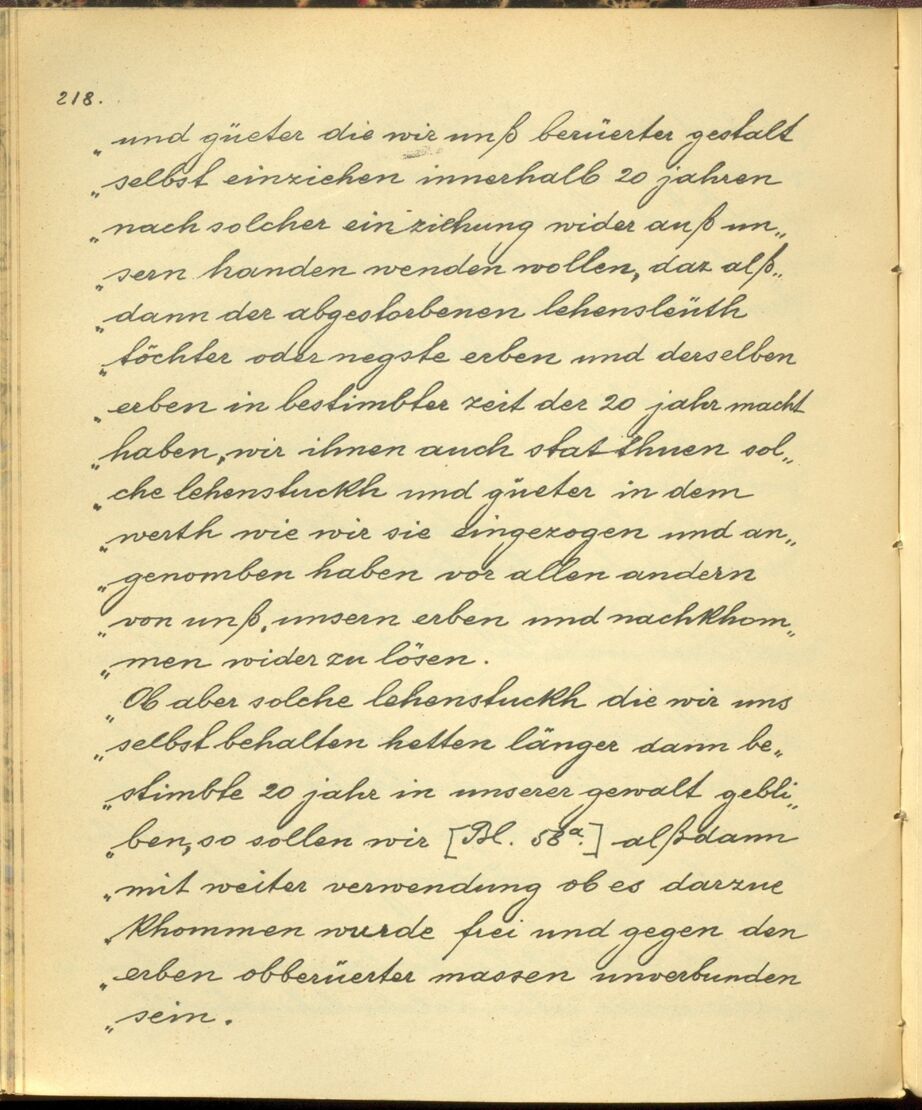 218.
„und güeter die wir unß berüerter gestalt
„selbst einziehen innerhalb 20 jahren
„nach solcher einziehung wider auß un„
„sern handen wenden wollen, daz alß„
„dann der abgestorbenen lehensleüth
„töchter oder negste erben und derselben
„erben in bestimbter zeit der 20 jahr macht
„haben, wir ihnen auch stat thuen sol„
„che lehenstuckh und güeter in dem
„werth wie wir sie eingezogen und an„
„genomben haben vor allen andern
„von unß, unsern erben und nachkhom„
„men wider zu lösen.
„Ob aber solche lehenstuckh die wir uns
„selbst behalten hetten länger dann be„
„stimbte 20 jahr in unserer gewalt gebli„
„ben, so sollen wir [Bl. 58a.] alßdann
„mit weiter verwendung ob es darzue
„khommen wurde frei und gegen den
„erben obberüerter massen unverbunden
„sein.